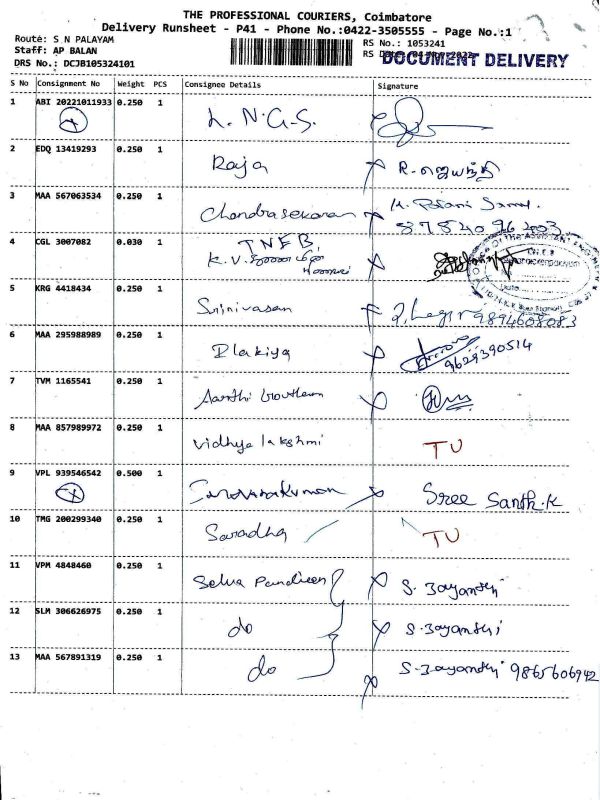 THE PROFESSIONAL COURIERS, Coimbatore
Delivery Runsheet - P41 - Phone No.:0422-3505555 - Page No.:1
Route: S N PALAYAM
RS No.: 1053241
Staff: AP BALAN
RS Date: 04-Nov-2022
DOCUMENT DELIVERY
DRS No.: DCJB105324101
S No Consignment No Weight PCS Consignee Details Signature
1 ABI 20221011933 0.250 1 L.N.G.S.
2 EDQ 13419293 0.250 1 Raja R. ஜெயந்தி
3 MAA 567063534 0.250 1 Chandrasekaran K. Palani Samy.
8784096203
4 CGL 3007082 0.030 1 TNEB
K.V.
5 KRG 4418434 0.250 1 Srinivasan 9894608083
6 MAA 295988989 0.250 1 Elakiya 9629390514
7 TVM 1165541 0.250 1 Aarthi Goutham
8 MAA 857989972 0.250 1 Vidhya lakshmi TU
9 VPL 939546542 0.500 1 Saravanakumar Sree Santh.K
10 TMG 200299340 0.250 1 Saradha TU
11 VPM 4848460 0.250 1 Selva Pandieen S. Jayanthi
12 SLM 306626975 0.250 1 do S. Jayanthi
13 MAA 567891319 0.250 1 do S. Jayanthi 9865606942